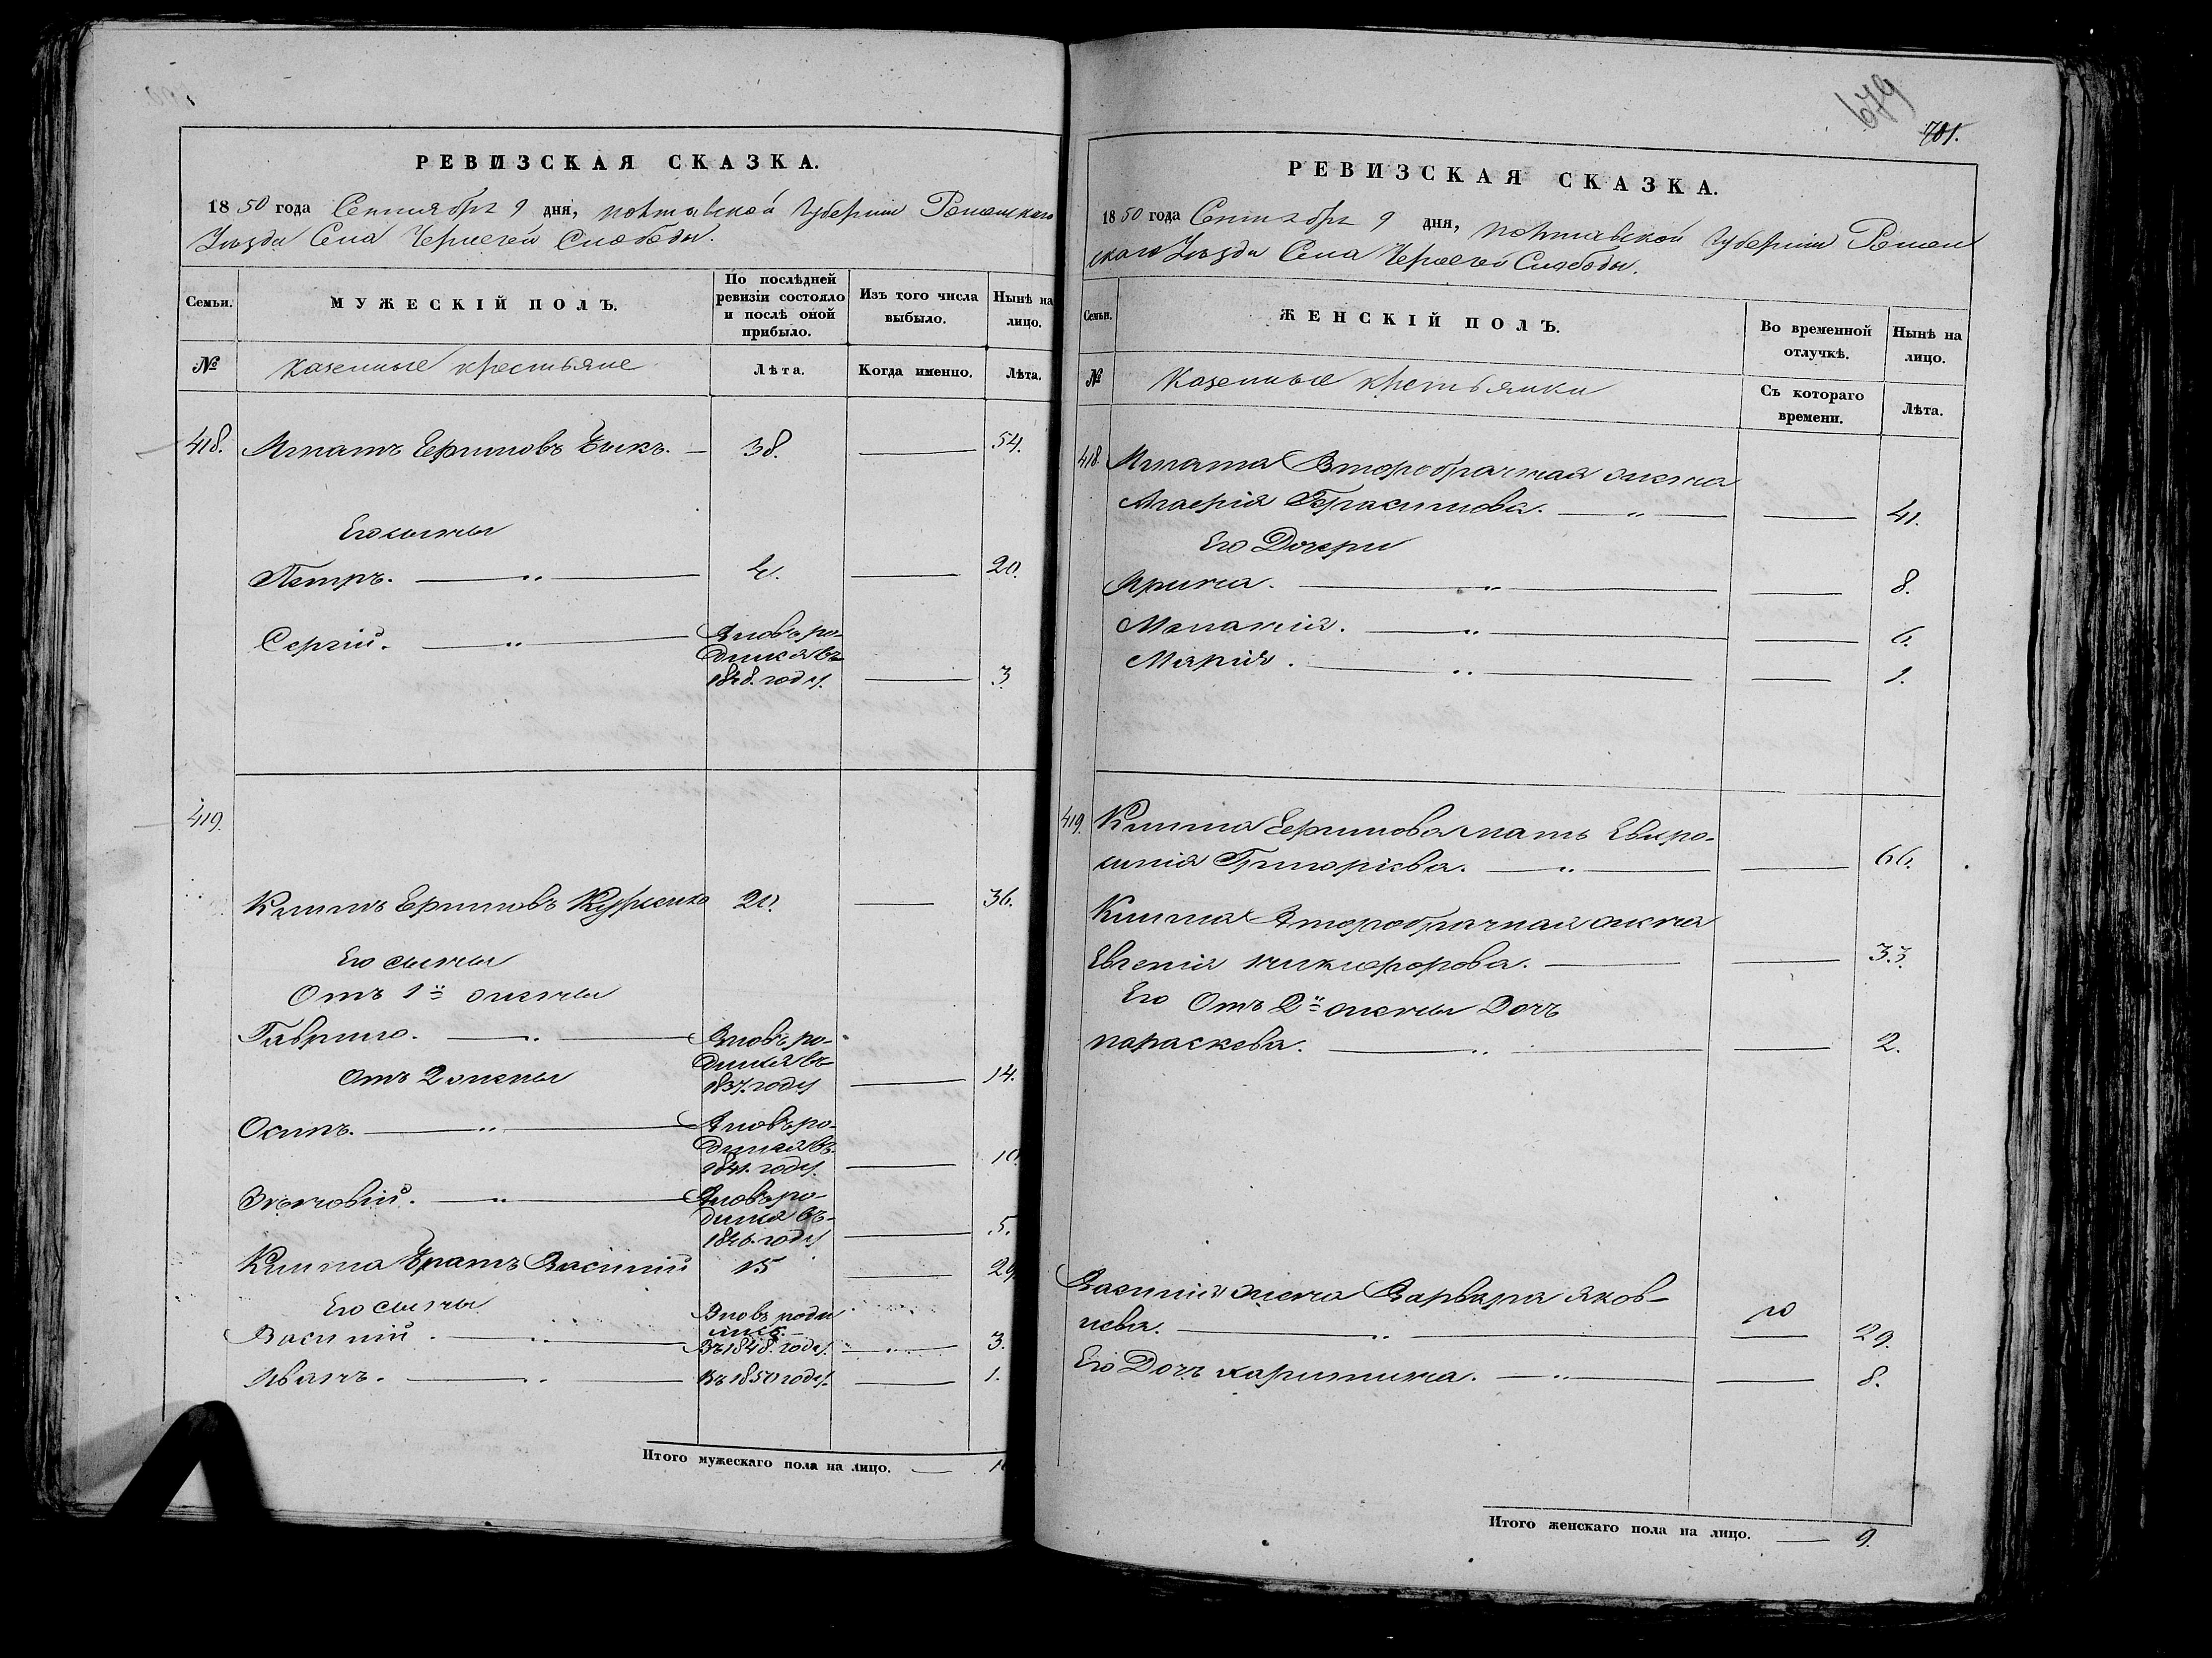 РЕВИЗСКАЯ СКАЗКА.
1850 года Сентября 9 дня, Полтавской Губернии Роменскаго
Уезда Села Чернечей Слободы.
Семьи.
МУЖЕСКІЙ ПОЛЪ.
По послѣдней
ревизіи состояло
и послѣ оной
прибыло.
Изъ того числа
выбыло.
Нынѣ на
лицо.
№
казенные крестьяне
Лѣта.
Когда именно.
Лѣта.
418. Игнатъ Ефимовъ Быкъ. 38. 54.
Его сыны
Петръ. 4. 20.
Сергій. Вновь ро-
дился въ
1848. году. 3.
419.
Климъ Ефимовъ 20. 36.
Его сыны
Отъ 1й жены
Гаврило. Вновь ро-
дился въ
1837. году 14.
Отъ 2 жены
Осипъ. Вновь ро-
дился въ
1841. году. 10.
Зѣновій. Вновь ро-
дился въ
1846. году 5.
Клима Братъ Василій 15
Его сыны
Вновь роди
лись.
Василій. Въ 1848. году. 3.
Иванъ. Въ 1850 году. 1.
Итого мужескаго пола на лицо.
679
701.
РЕВИЗСКАЯ СКАЗКА.
1850 года Сентября 9 дня, Полтавской Губерніи Ромен
скаго Уезда Села Чернечей Слободы.
Семьи.
ЖЕНСКІЙ ПОЛЪ.
Во временной
отлучкѣ.
Нынѣ на
лицо.
№
Казенные крестьянки
Съ котораго
времени.
Лѣта.
418. Игната Второбрачная жена
Герасимова. 41.
Его Дочери
Ирина. 8.
Маланія. 6.
Марія. 1.
419. Клима Ефимова мать Евфро-
синія Григоріева. 66.
Клима Второбрачная жена
Евгенія Никифорова. 33.
Его Отъ 2й жены Дочь
Параскева. 2.
Василія жена Варвара Яков-
лева. 29.
Его Дочь Харитина. 8.
Итого женскаго пола на лицо. 9.